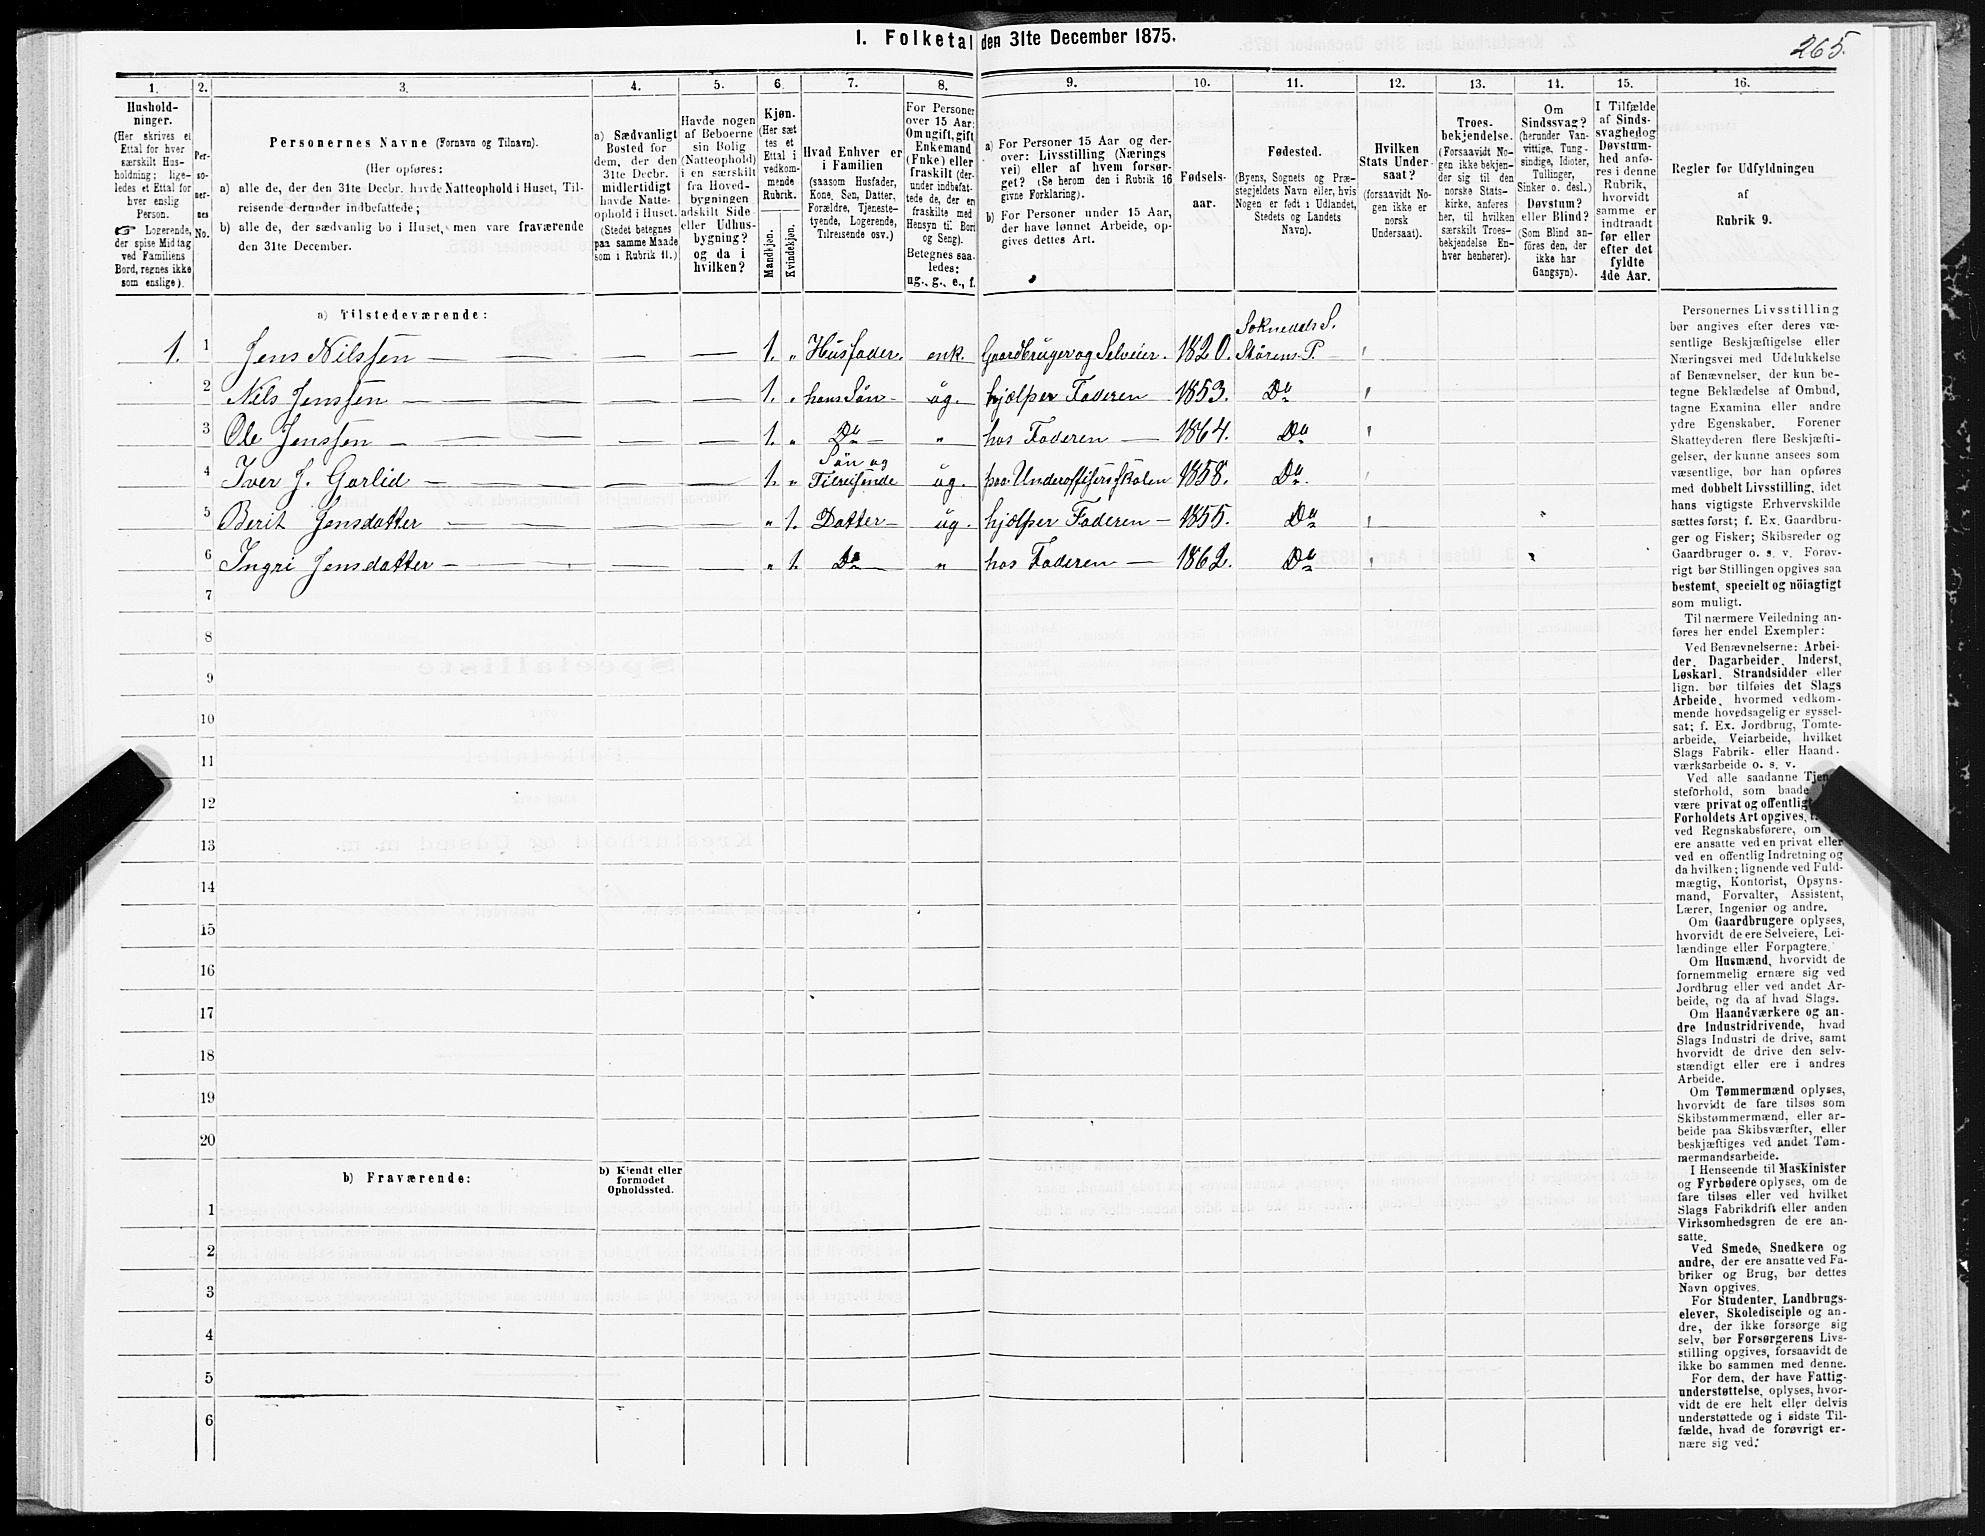 1. Folketal den 31te December 1875.
265.
1.
2.
3.
4.
5.
6
7.
8.
9.
10.
11.
12.
13.
14.
15.
16.
Hushold-
ninger.
(Her skrives et
Ettal for hver
særskilt Hus-
holdning; lige-
ledes et Ettal for
hver enslig
Person.
☞ Logerende,
der spise Middag
ved Familiens
Bord, regnes ikke
som enslige).
Per-
so-
ner-
nes
No.
Personernes Navne (Fornavn og Tilnavn).
(Her opføres:
a) alle de, der den 31te Decbr. havde Natteophold i Huset, Til-
reisende derunder indbefattede;
b) alle de, der sædvanlig bo i Huset, men vare fraværende
den 31te December.
a) Sædvanligt
Bosted for
dem, der den
31te Decbr.
midlertidigt
havde Natte-
ophold i Huset.
(Stedet betegnes
paa samme Maade
som i Rubrik 11.)
Havde nogen
af Beboerne
sin Bolig
(Natteophold)
i en særskilt
fra Hoved-
bygningen
adskilt Side-
eller Udhus-
bygning?
og da i
hvilken?
Kjøn.
(Her sæt
tes et
Ettal i
vedkom-
mende
Rubrik.
Mandkjøn.
Kvindekjøn.
Hvad Enhver er
i Familien
(saasom Husfader,
Kone, Søn, Datter,
Forældre, Tjeneste-
tyende, Logerende,
Tilreisende osv.)
For Personer
over 15 Aar:
Om ugift, gift
Enkemand
(Enke) eller
fraskilt (der-
under indbefat-
tede de, der en
fraskilte med
Hensyn til Bord
og Seng).
Betegnes saa-
ledes:
ug., g., e., f.
a) For Personer 15 Aar og der-
over: Livsstilling (Nærings
vei) eller af hvem forsør-
get? (Se herom den i Rubrik 16
givne Forklaring).
b) For Personer under 15 Aar,
der have lønnet Arbeide, op-
gives dettes Art.
Fødsels-
aar.
Fødested.
(Byens, Sognets og Præ-
stegjeldets Navn eller, hvis
Nogen er født i Udlandet,
Stedets og Landets
Navn).
Hvilken
Stats Under-
saat?
(forsaavidt No-
gen ikke er
norsk
Undersaat).
Troes-
bekjendelse.
(Forsaavidt No-
gen ikke bekjen-
der sig til den
norske Stats-
kirke, anføres
her, til hvilken
særskilt Troes-
bekjendelse En-
hver henhører).
Om
Sindssvag?
(herunder Van-
vittige, Tung-
sindige, Idioter,
Tullinger,
Sinker o. desl.)
Døvstum?
eller Blind?
(Som Blind an-
føres den, der
ikke har
Gangsyn).
I Tilfælde
af Sinds-
svaghedog
Døvstum-
hed anfø-
res i denne
Rubrik,
hvorvidt
samme er
indtraadt
før eller
efter det
fyldte
4de Aar.
Regler for Udfyldningen
af
Rubrik 9.
a) Tilstedeværende:
1. 1 Jens Nilssen — — — — — 1. „ Husfader. enk. Gaardbruger og Selveier. 1820. Soknedals S. Störens P.
2 Nils Jenssen — — — — — 1. „ hans Sön — ug. hjælper Faderen 1853. Do
3 Ole Jenssen — — — — — 1. „ Do — „ hos Faderen — 1864. Do
4 Iver J. Garlid — — — — — 1. „ Sön og Tilreisende ug. paa Underoffisersskolen 1858. Do.
5 Berit Jensdatter — — — — „ 1. Datter — ug. hjælper Faderen — 1855. Do
6 Ingri Jensdatter — — — — „ 1. Do — „ hos Faderen — 1862. Do
7
8
9
10
11
12
13
14
15
16
17
18
19
20
b) Fraværende:
b) Kjendt eller
formodet
Opholdssted.
1
2
3
4
5
6
Personernes Livsstilling
bør angives efter deres væ-
sentlige Beskjæftigelse eller
Næringsvei med Udelukkelse
af Benævnelser, der kun be-
tegne Beklædelse af Ombud,
tagne Examina eller andre
ydre Egenskaber. Forener
Skatteyderen flere Beskjæfti-
gelser, der kunne ansees som
væsentlige, bør han opføres
med dobbelt Livsstilling, idet
hans vigtigste Erhvervskilde
sættes først; f. Ex. Gaardbru-
ger og Fisker; Skibsreder og
Gaardbruger o. s. v. Forøv-
rigt bør Stillingen opgives saa
bestemt, specielt og nöiagtigt
som muligt.
Til nærmere Veiledning an-
føres her endel Exempler:
Ved Benævnelserne: Arbei-
der, Dagarbeider, Inderst,
Løskarl, Strandsidder eller
lign. bør tilføies det Slags
Arbeide, hvormed vedkom-
mende hovedsagelig er syssel-
sat; f. Ex. Jordbrug, Tomte-
arbeide, Veiarbeide, hvilket
Slags Fabrik- eller Haand-
værksarbeide o. s. v.
Ved alle saadanne Tjene-
steforhold, som baade
være privat og offentligt,
Forholdets Art opgives,
ved Regnskabsførere, om
ere ansatte ved en privat eller
ved en offentlig Indretning og
da hvilken; lignende ved Fuld-
mægtig, Kontorist, Opsyns-
mand, Forvalter, Assistent,
Lærer, Ingeniør og andre.
Om Gaardbrugere oplyses,
hvorvidt de ere Selveiere, Lei-
lændinge eller Forpagtere.
Om Husmænd, hvorvidt de
fornemmelig ernære sig ved
Jordbrug eller ved andet Ar-
beide, og da af hvad Slags.
Om Haandværkere og an-
dre Industridrivende, hvad
Slags Industri de drive, samt
hvorvidt de drive den selv-
stændigt eller ere i andres
Arbeide.
Om Tømmermænd oplyses,
hvorvidt de fare tilsøs som
Skibstømmermænd, eller ar-
beide paa Skibsværfter, eller
beskjæftiges ved andet Tøm-
mermandsarbeide.
I Henseende til Maskinister
og Fyrbødere oplyses, om de
fare tilsøs eller ved hvilket
Slags Fabrikdrift eller anden
Virksomhedsgren de ere an-
satte.
Ved Smede, Snedkere og
andre, der ere ansatte ved Fa-
briker og Brug, bør dettes
Navn opgives.
For Studenter, Landbrugs-
elever, Skoledisciple og an-
dre, der ikke forsørge sig
selv, bør Forsørgerens Livs-
stilling opgives, forsaavidt de
ikke bo sammen med denne.
For dem, der have Fattig-
understøttelse, oplyses, hvor-
vidt de ere helt eller delvis
understøttede og i sidste Til-
fælde, hvad de forøvrigt er-
nære sig ved.